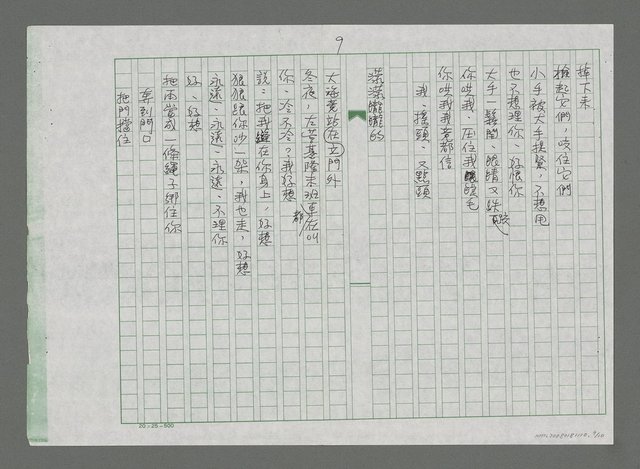 9
掉下來
撿起它們，咬住它們
小手被大手捏緊，不想甩
也不想理你，好恨你
大手一鬆開，眼睛又跌
你哄我，压住我睫毛
你哄我我并都信
我，搖頭、又點頭
濛濛朧朧的
大海竟站在立門外
冬夜，左營基隆末班車都在叫
你，冷不冷？我好想
說：把我在你身上，好想
狠狠跟你吵一架，我也走，好想
永遠，永遠，永遠，不理你
好，好想
把雨當成一條繩子綁住你
奔到門口
把門擋住
20×25=500